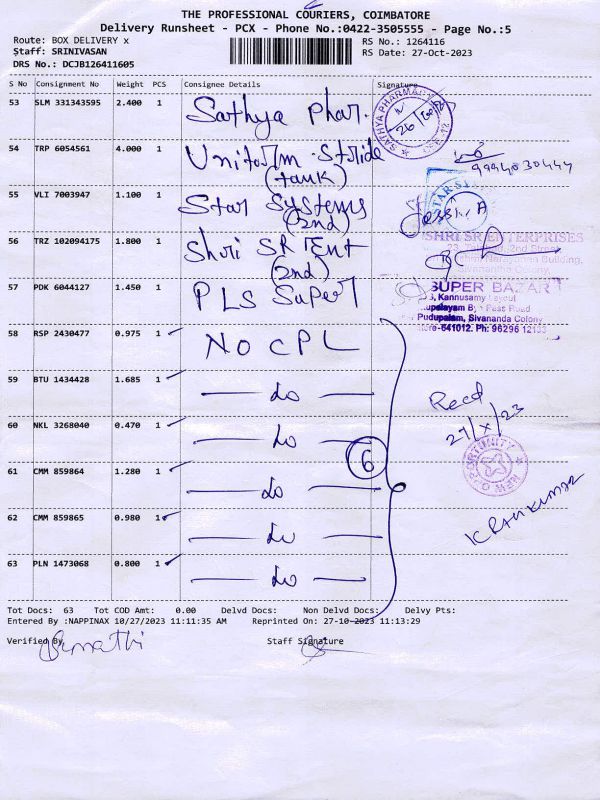 THE PROFESSIONAL COURIERS, COIMBATORE
Delivery Runsheet - PCX - Phone No.:0422-3505555 - Page No.:5
Route: BOX DELIVERY x
RS No.: 1264116
Staff: SRINIVASAN
RS Date: 27-Oct-2023
DRS No.: DCJB126411605
S No Consignment No Weight PCS Consignee Details Signature
53 SLM 331343595 2.400 1 Sathya Phar.
SATHYA PHARMACY
54 TRP 6054561 4.000 1 Uniform Stride
(tank)
9994030444
55 VLI 7003947 1.100 1 Star Systems
(2nd)
Jessi. A
56 TRZ 102094175 1.800 1 Shri SR Ent
(2nd)
SHRI SR ENTERPRISES
57 PDK 6044127 1.450 1 PLS Super
SUPER BAZAR
Kannusamy Layout
Pudupalam, Sivananda Colony
-641012. Ph: 96296
58 RSP 2430477 0.975 1 NO CPL
59 BTU 1434428 1.685 1 — do —
60 NKL 3268040 0.470 1 — do —
6
61 CMM 859864 1.280 1 — do —
62 CMM 859865 0.980 1 — do —
63 PLN 1473068 0.800 1 — do —
Recd
27/X/23
NEW OPPORTUNITY
K RAMKUMAR
Tot Docs: 63 Tot COD Amt: 0.00 Delvd Docs: Non Delvd Docs: Delvy Pts:
Entered By :NAPPINAX 10/27/2023 11:11:35 AM Reprinted On: 27-10-2023 11:13:29
Verified By
Staff Signature